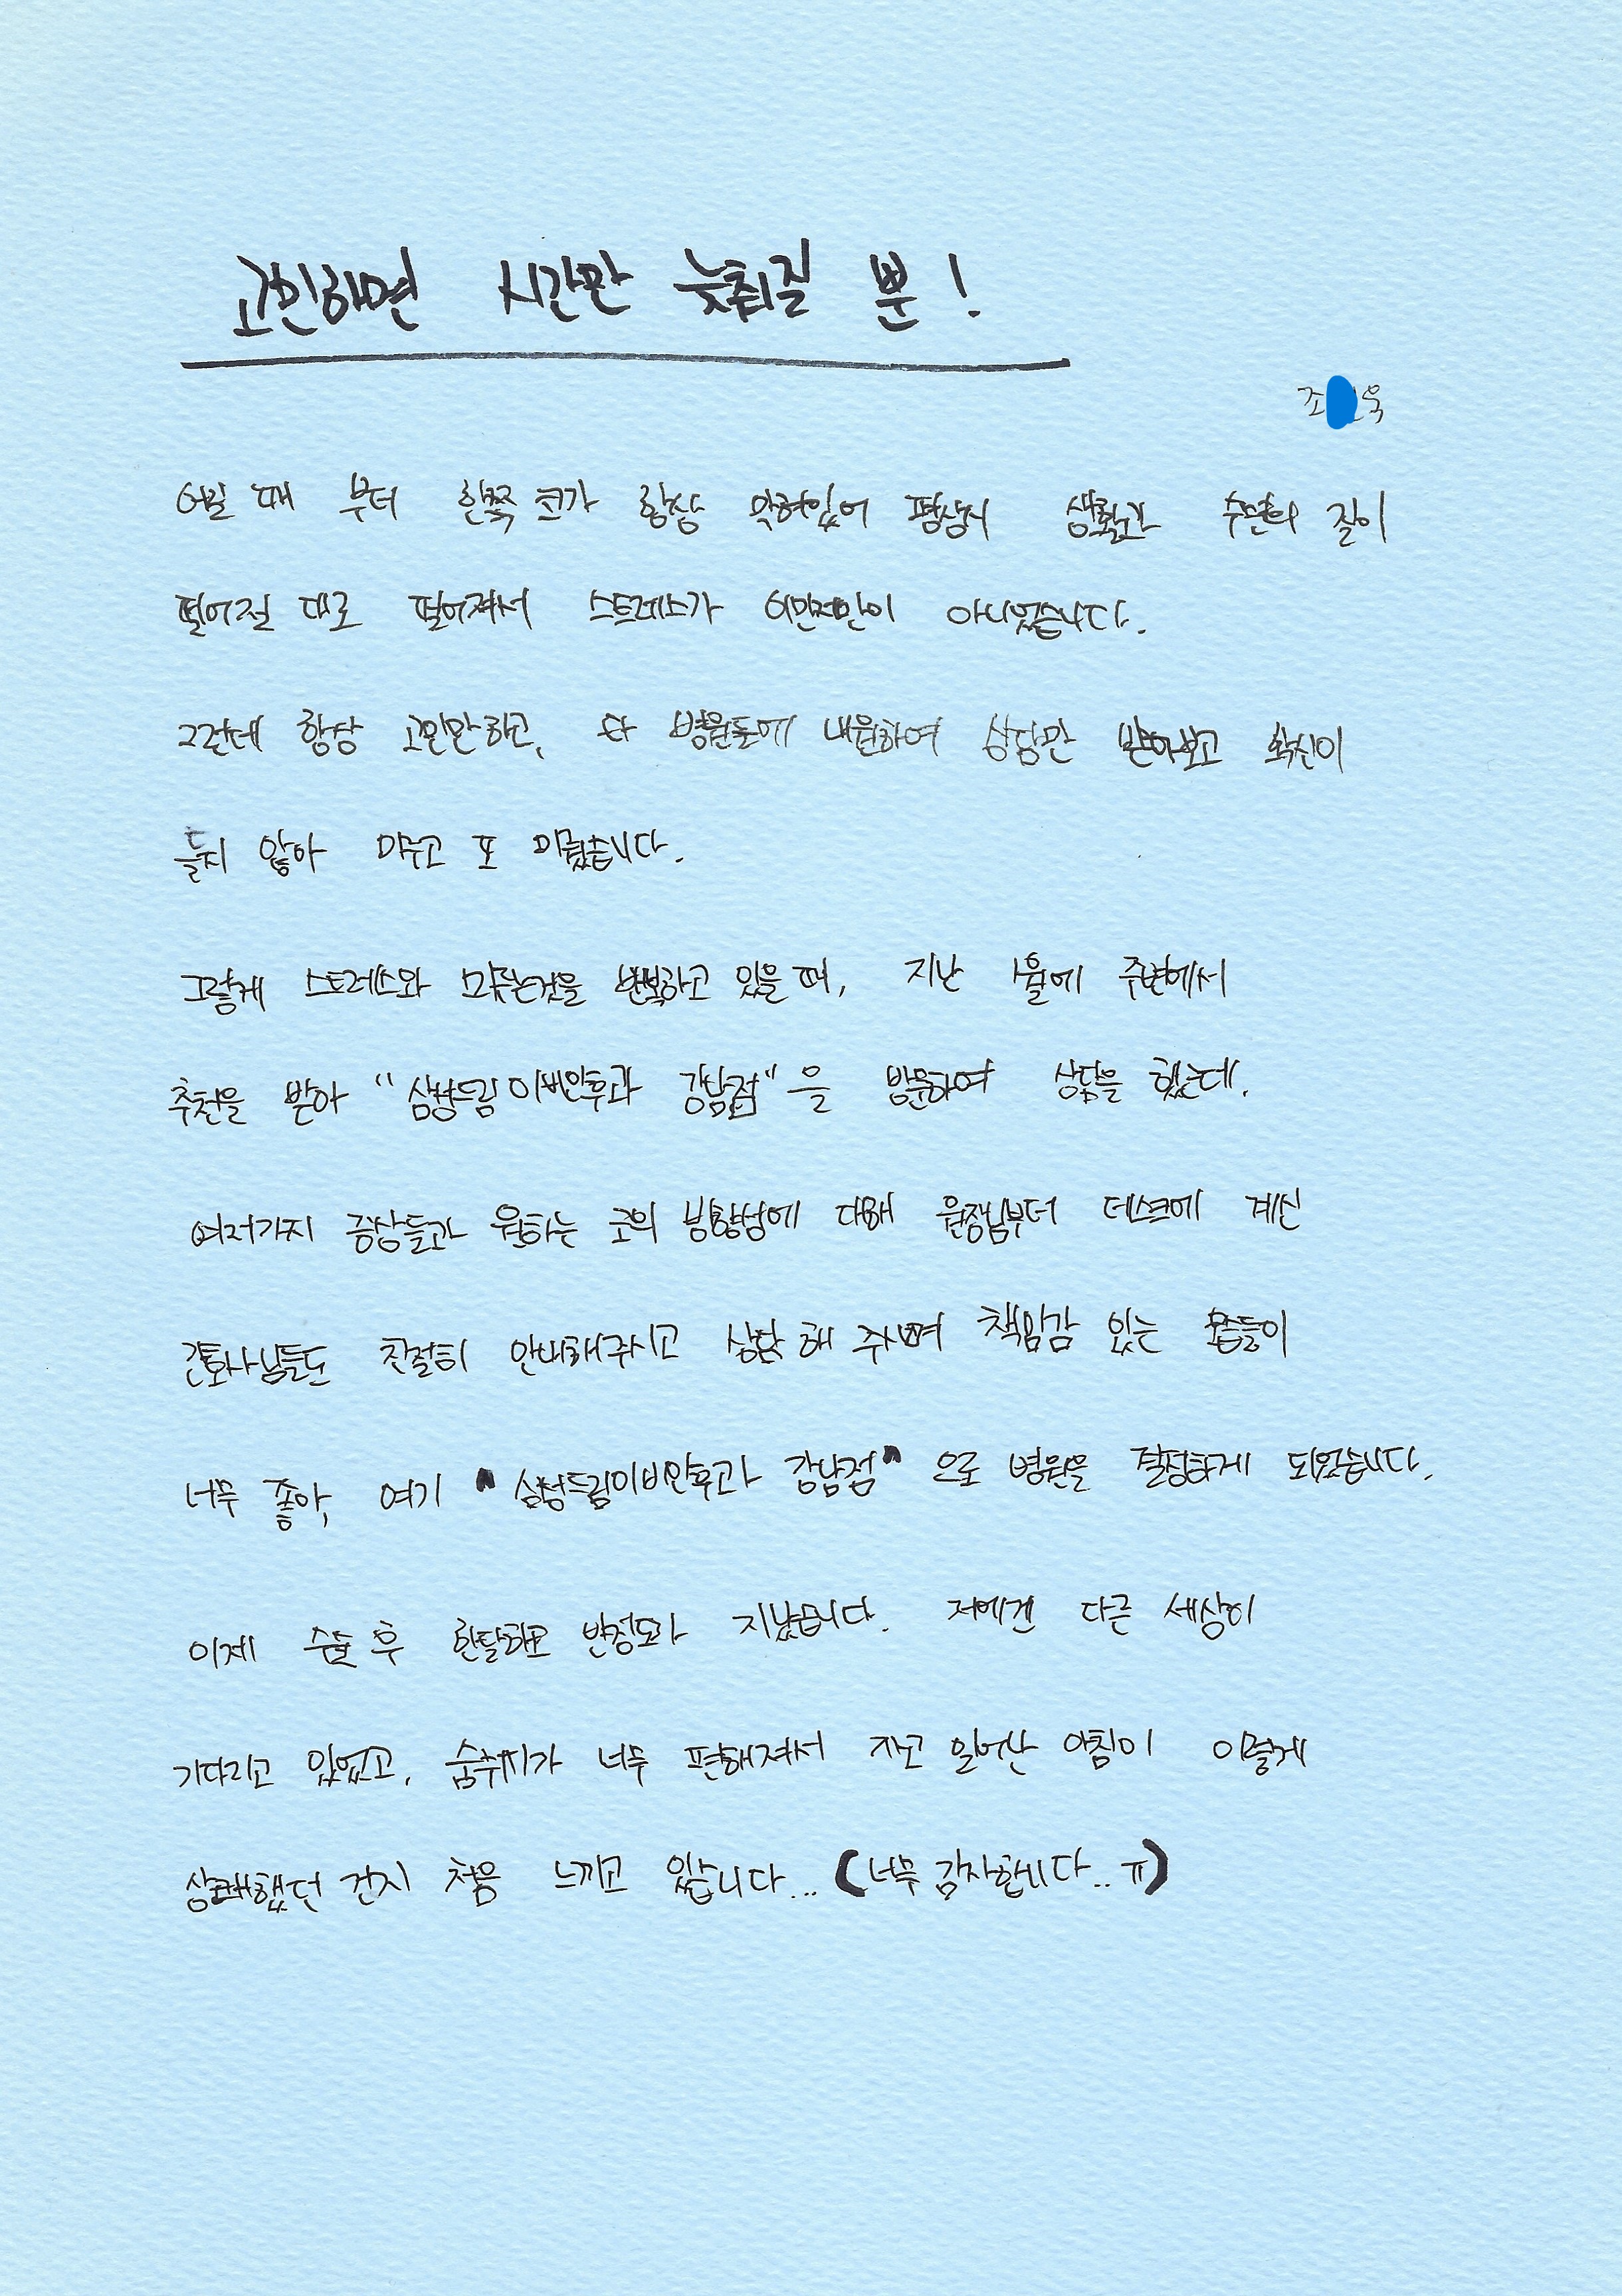 고민하면 시간만 늦춰질 뿐!
조 욱
어릴 때 부터 한쪽 코가 항상 막혀있어 평상시 생활과 수면의 질이
떨어질 대로 떨어져서 스트레스가 이만저만이 아니었습니다.
그런데 항상 고민만 하고, 타 병원들에 내원하여 상담만 받아보고 확신이
들지 않아 미루고 또 미뤘습니다.
그렇게 스트레스와 미루는것을 반복하고 있을 때, 지난 1월에 주변에서
추천을 받아 "삼성드림이비인후과 강남점"을 방문하여 상담을 했는데,
여러가지 증상들과 원하는 코의 방향성에 대해 원장님부터 데스크에 계신
간호사님들도 친절히 안내해주시고 상담 해 주시며 책임감 있는 모습들이
너무 좋아, 여기 "삼성드림이비인후과 강남점"으로 병원을 결정하게 되었습니다.
이제 수술 후 한달하고 반정도가 지났습니다. 저에겐 다른 세상이
기다리고 있었고, 숨쉬기가 너무 편해져서 자고 일어난 아침이 이렇게
상쾌했던 건지 처음 느끼고 있습니다... (너무 감사합니다..ㅠ)